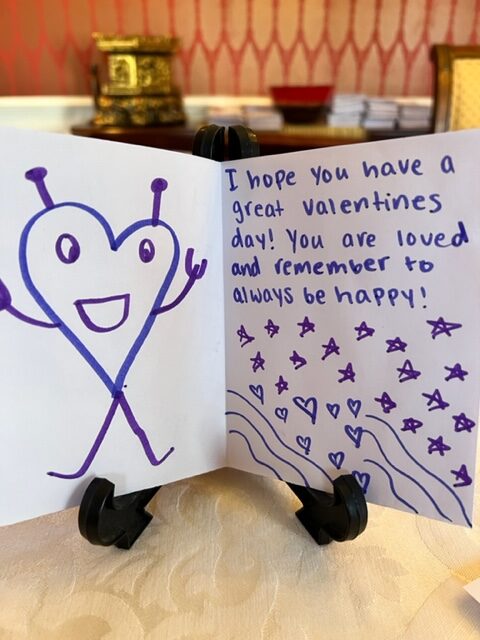 I hope you have a
great valentines
day! You are loved
and remember to
always be happy!